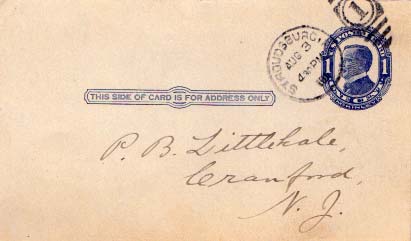 1
STROUDSBURG
AUG 3
4-PM
U.S. POSTAL CARD
1 1
THIS SIDE OF CARD IS FOR ADDRESS ONLY
P. B. Littlehale,
Cranford,
N. J.